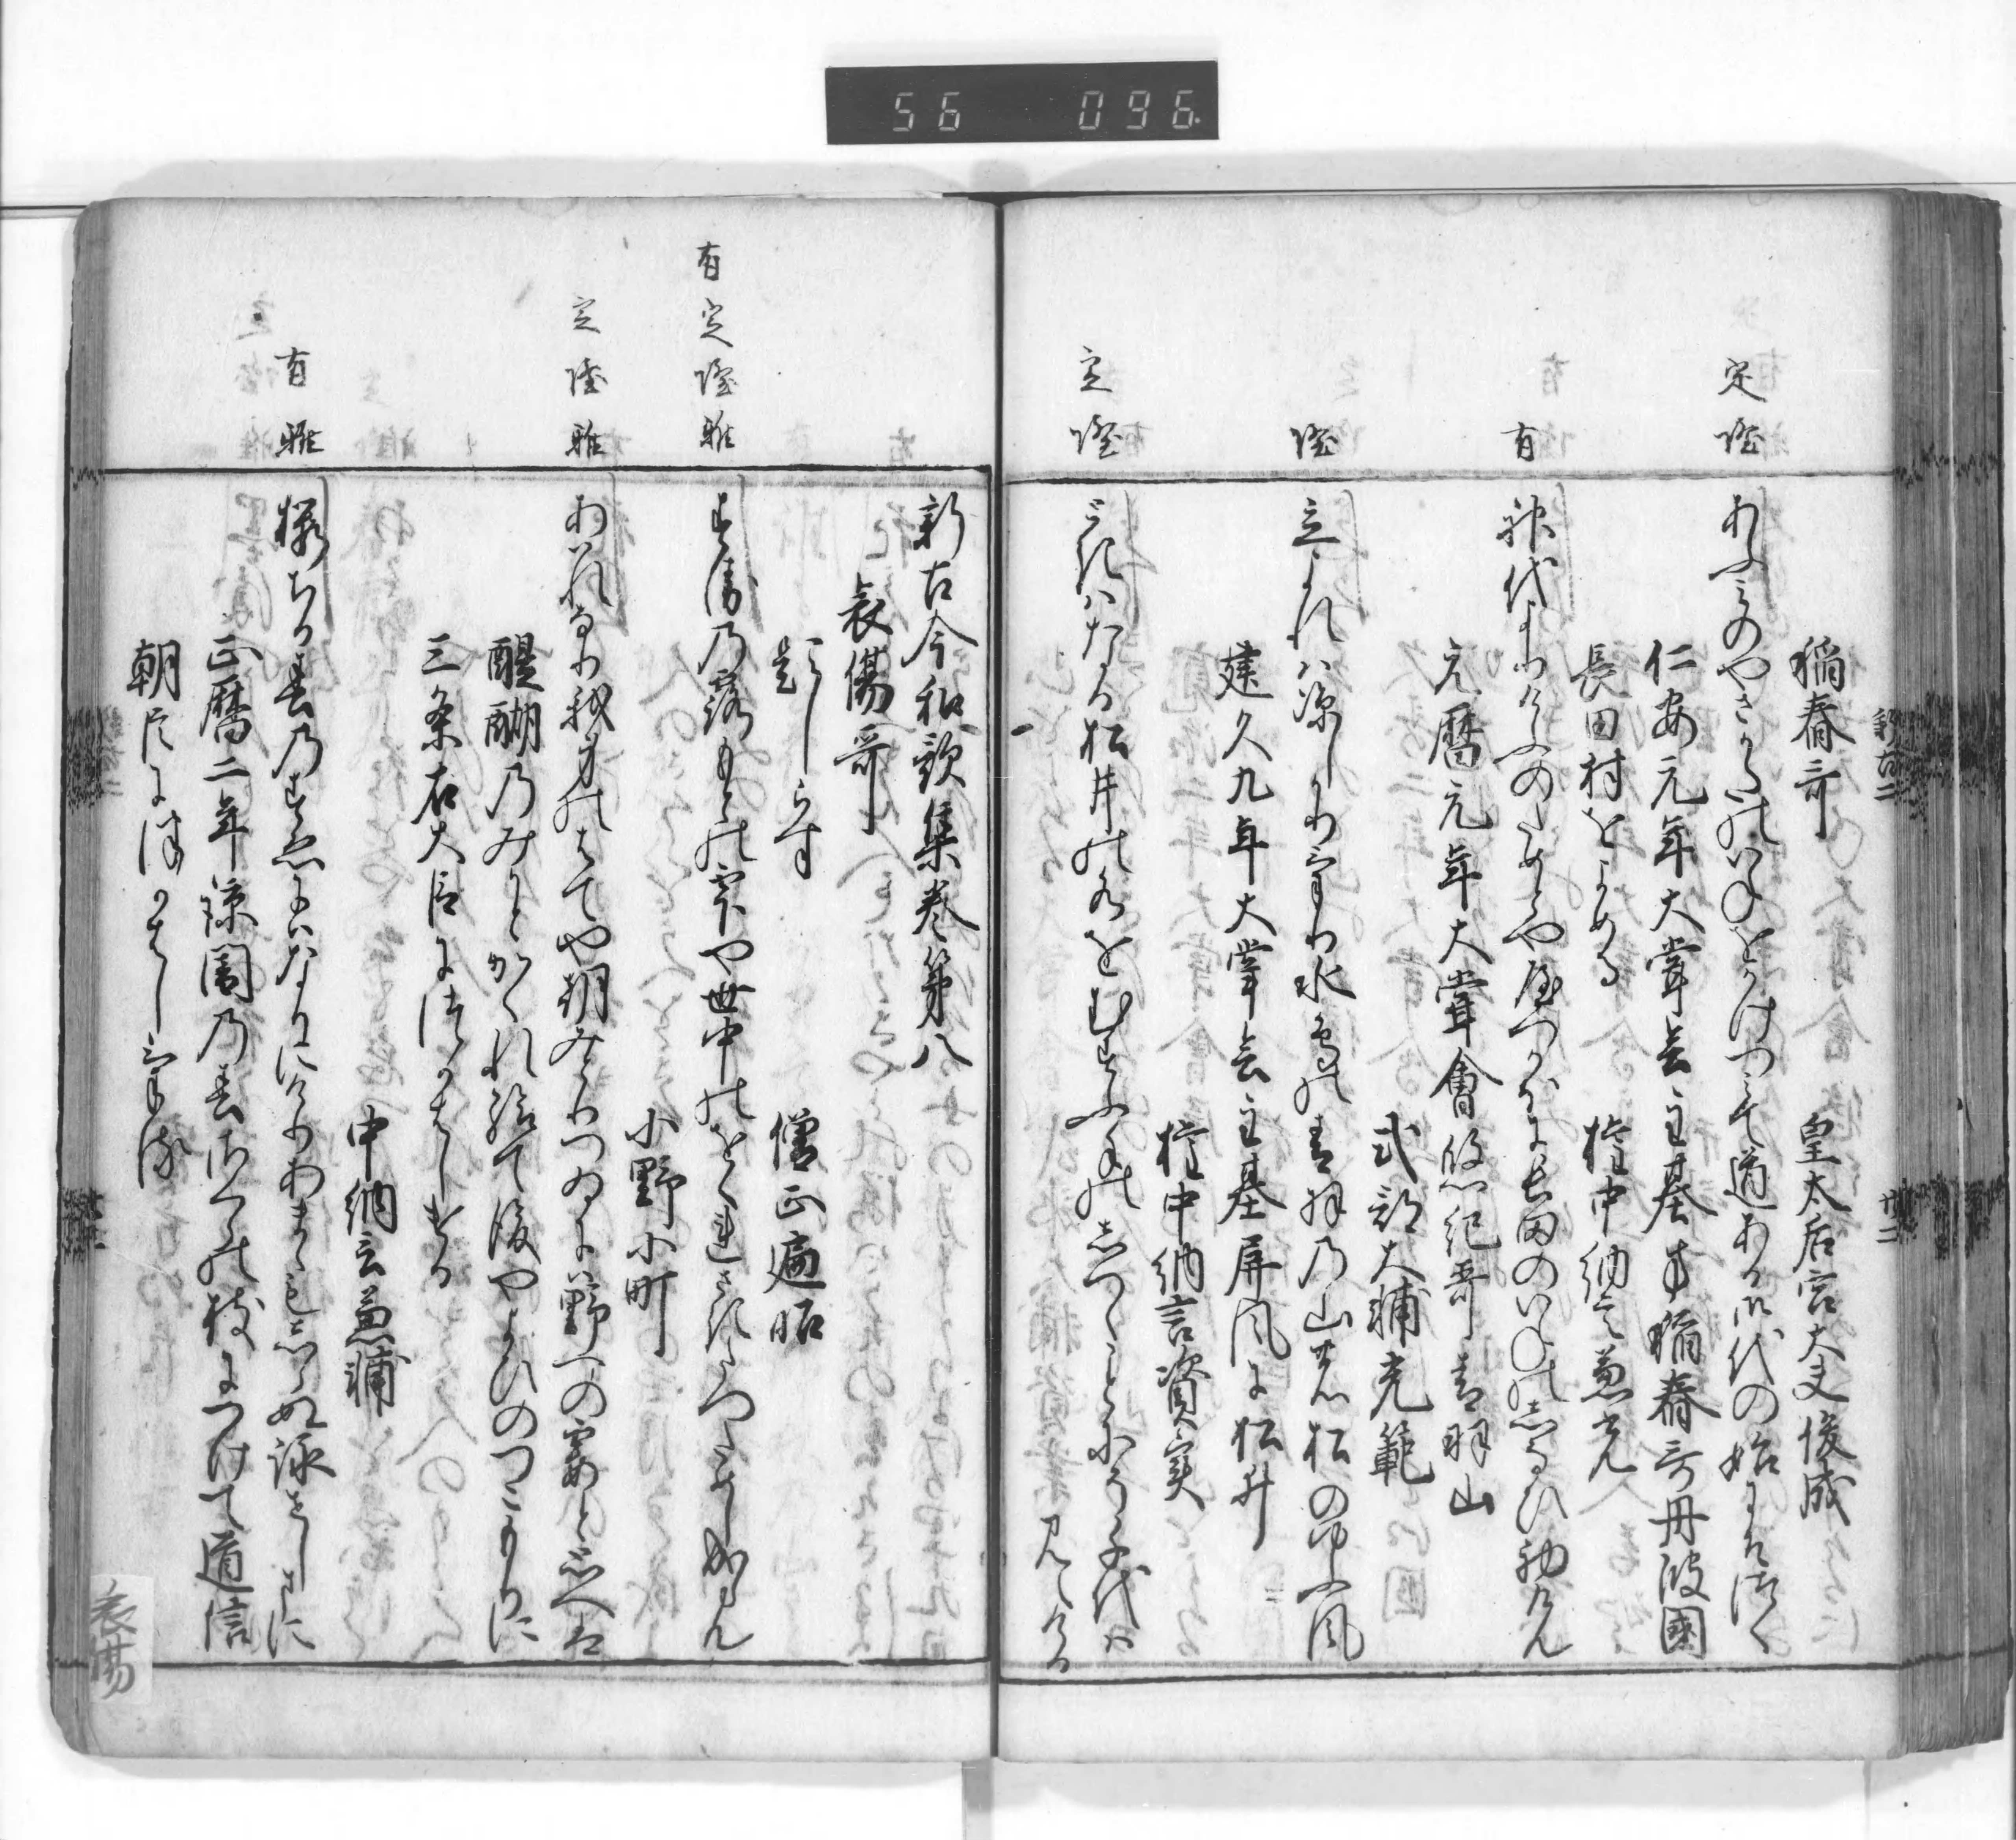 56 096
新古二
廿二
稲舂哥 皇太后宮大夫俊成
定隆
あふみのやさかたのいねをかけつみて道ある御代の始にそつく
仁安元年大嘗会主基方稲舂哥丹波國
長田村をよめる 権中納言兼光
有
神代よりけふのためとや屋つかほに長田のいねのしなひ初けん
元暦元年大嘗會悠紀哥青羽山
式部大輔光範
隆
立よれは凉しかりけり水鳥の青羽の山の松の夕風
建久九年大嘗会主基屏風に松井
権中納言資実
定隆
ときはなる松井の水をむすふ手のしつくことにそ千代は
見えける
新古今和歌集巻第八
哀傷哥
題しらす 僧正遍昭
有定隆雅
すゑの露もとの雫や世中のをくれさきたつためしなるらん
小野小町
定隆雅
あはれなり我身のはてや朝みとりつゐには野への霞と思へは
醍醐のみかとかくれ給て後やよひのつこもりに
三条右大臣につかはしける
中納言兼輔
有雅
桜ちる春のすゑにはなりにけりあまゝもしらぬ詠せしまに
正暦二年諒闇の春さくらの枝につけて道信
朝臣につかはしける
哀傷